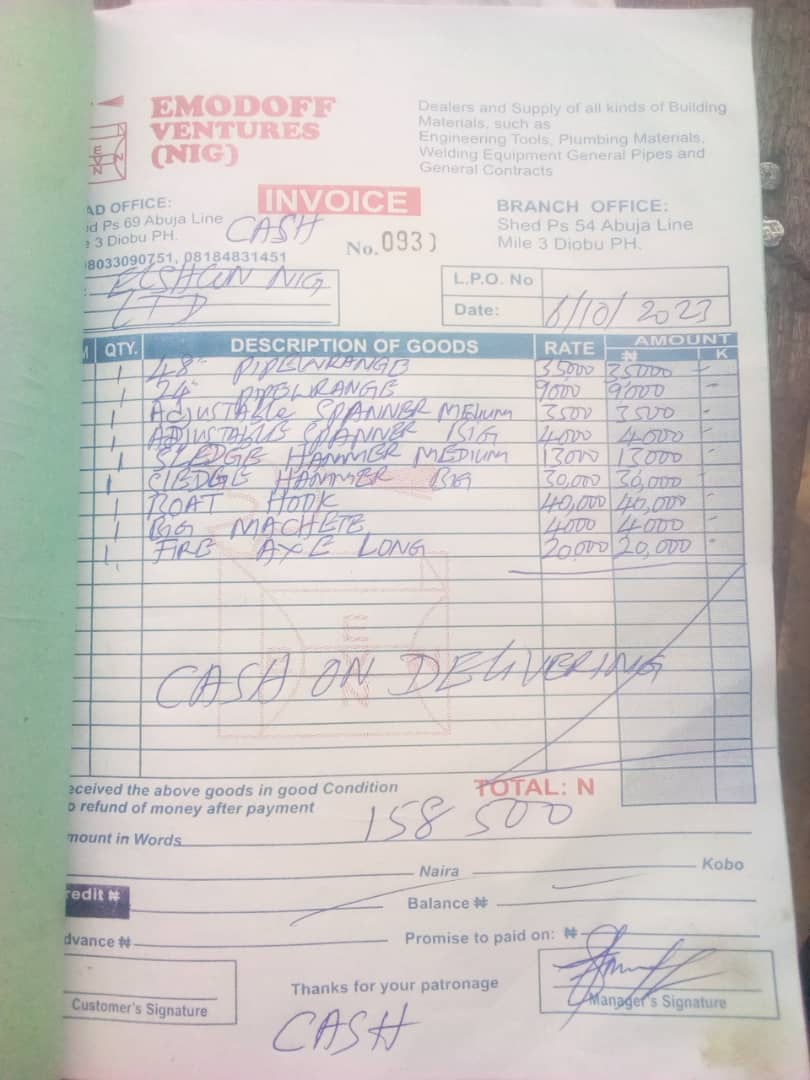 EMODOFF
VENTURES
(NIG)
Dealers and Supply of all kinds of Building
Materials, such as
Engineering Tools, Plumbing Materials,
Welding Equipment General Pipes and
General Contracts
INVOICE
AD OFFICE:
Ps 69 Abuja Line
3 Diobu PH.
8033090751, 08184831451
CASH
No. 093
BRANCH OFFICE:
Shed Ps 54 Abuja Line
Mile 3 Diobu PH.
NIG
LTD
L.P.O. No
Date: 6/10/2023
QTY. DESCRIPTION OF GOODS RATE AMOUNT
₦ K
1 48" PIPEWRANGE 35000 -
1 24" PIPEWRANGE 9000 9000 -
1 Adjustable SPANNER MEDIUM 3500 3500 -
1 ADJUSTABLE SPANNER BIG 4000 4000 -
1 SLEDGE HAMMER MEDIUM 13000 13000 -
1 SLEDGE HAMMER BIG 30,000 30,000 -
1 BOAT HOOK 40,000 40,000 -
1 BIG MACHETE 4000 4000 -
1 FIRE AXE LONG 20,000 20,000 -
CASH ON DELIVERING
eceived the above goods in good Condition
o refund of money after payment
TOTAL: N
158 500
mount in Words
Naira Kobo
redit ₦
Balance ₦
dvance ₦
Promise to paid on: ₦
Thanks for your patronage
Customer's Signature
Manager's Signature
CASH